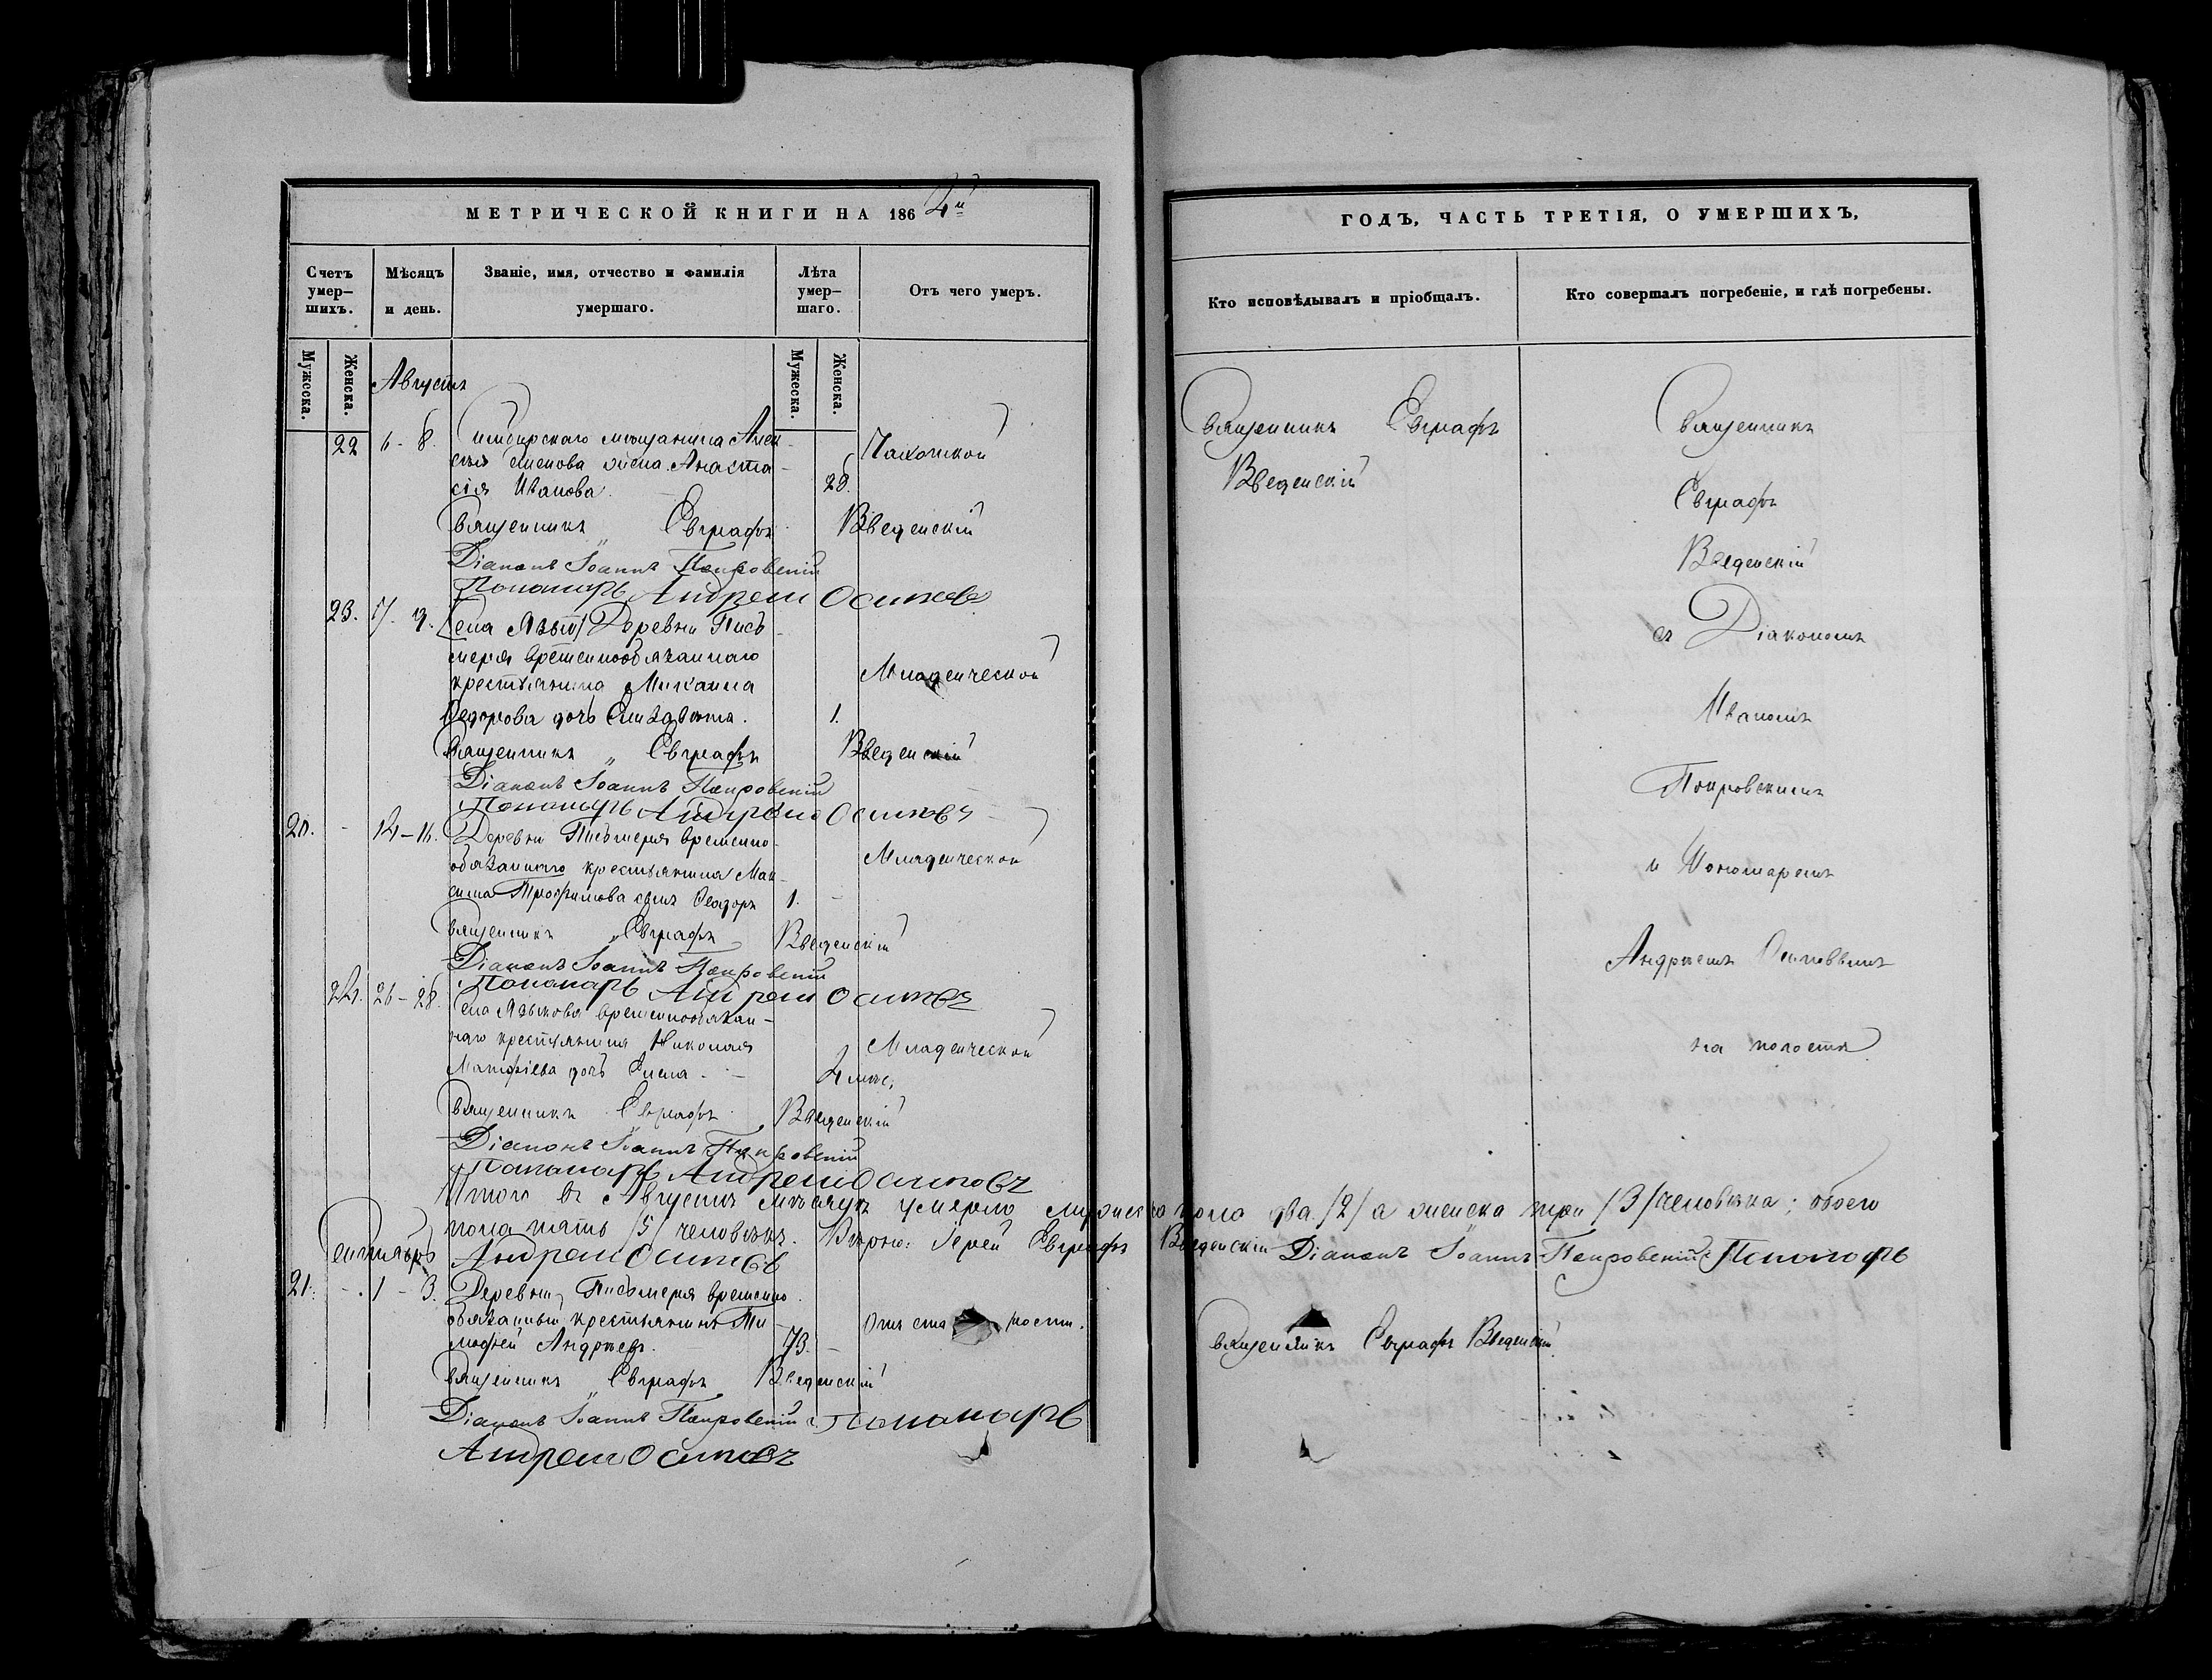 МЕТРИЧЕСКОЙ КНИГИ НА 1864й
Счетъ умер-шихъ.
Мѣсяцъ и день.
Званіе, имя, отчество и фамилія умершаго.
Лѣта умер-шаго.
Отъ чего умеръ.
Мужеска.
Женска.
Мужеска.
Женска.
Августъ
22 6-8. Симбирскаго мѣщанина Алек-
сѣя Семенова жена Анаста-
сія Иванова. 28. Чахоткой
Священникъ Евграфъ Введенскій
Діаконъ Іоаннъ Покровскій
Пономарь Андрей Осиповъ
23. 17-19. Села Языкова Деревни Пись-
меря временнообязаннаго
крестьянина Михаила
Ѳедорова дочь Елизавета. 1. Младенческой
Священникъ Евграфъ Введенскій
Діаконъ Іоаннъ Покровскій
Пономарь Андрей Осиповъ
20. - 14-16. Деревни Письмеря временно-
обязаннаго крестьянина Мак-
сима Трофимова сынъ Ѳеодоръ 1. Младенческой
Священникъ Евграфъ Введенскій
Діаконъ Іоаннъ Покровскій
Пономарь Андрей Осиповъ
24. 26-28. Села Языкова временнообязан-
наго крестьянина Николая
Матфіева дочь Елена 2 мѣс. Младенческой
Священникъ Евграфъ Введенскій
Діаконъ Іоаннъ Покровскій
Пономарь Андрей Осиповъ
Итого въ Августѣ мѣсяцѣ умерло мужеска пола два /2/ а женска три /3/ человѣка; обоего
пола пять /5/ человѣкъ. Вѣрно: Іерей Евграфъ Введенскій Діаконъ Іоаннъ Покровскій Пономарь
Андрей Осиповъ
Сентябрь
21. - 1-3. Деревни Письмеря временно
обязанный крестьянинъ Ти-
мофей Андреевъ. 73. Отъ ста рости.
Священникъ Евграфъ Введенскій
Діаконъ Іоаннъ Покровскій Пономарь
Андрей Осиповъ
ГОДЪ, ЧАСТЬ ТРЕТІЯ, О УМЕРШИХЪ,
Кто исповѣдывалъ и пріобщалъ.
Кто совершалъ погребеніе, и гдѣ погребены.
Священникъ Евграфъ
Введенскій
Священникъ
Евграфъ
Введенскій
съ Діакономъ
Иваномъ
Покровскимъ
и Пономаремъ
Андреемъ Осиповымъ
на погостѣ
Священникъ Евграфъ Введенскій